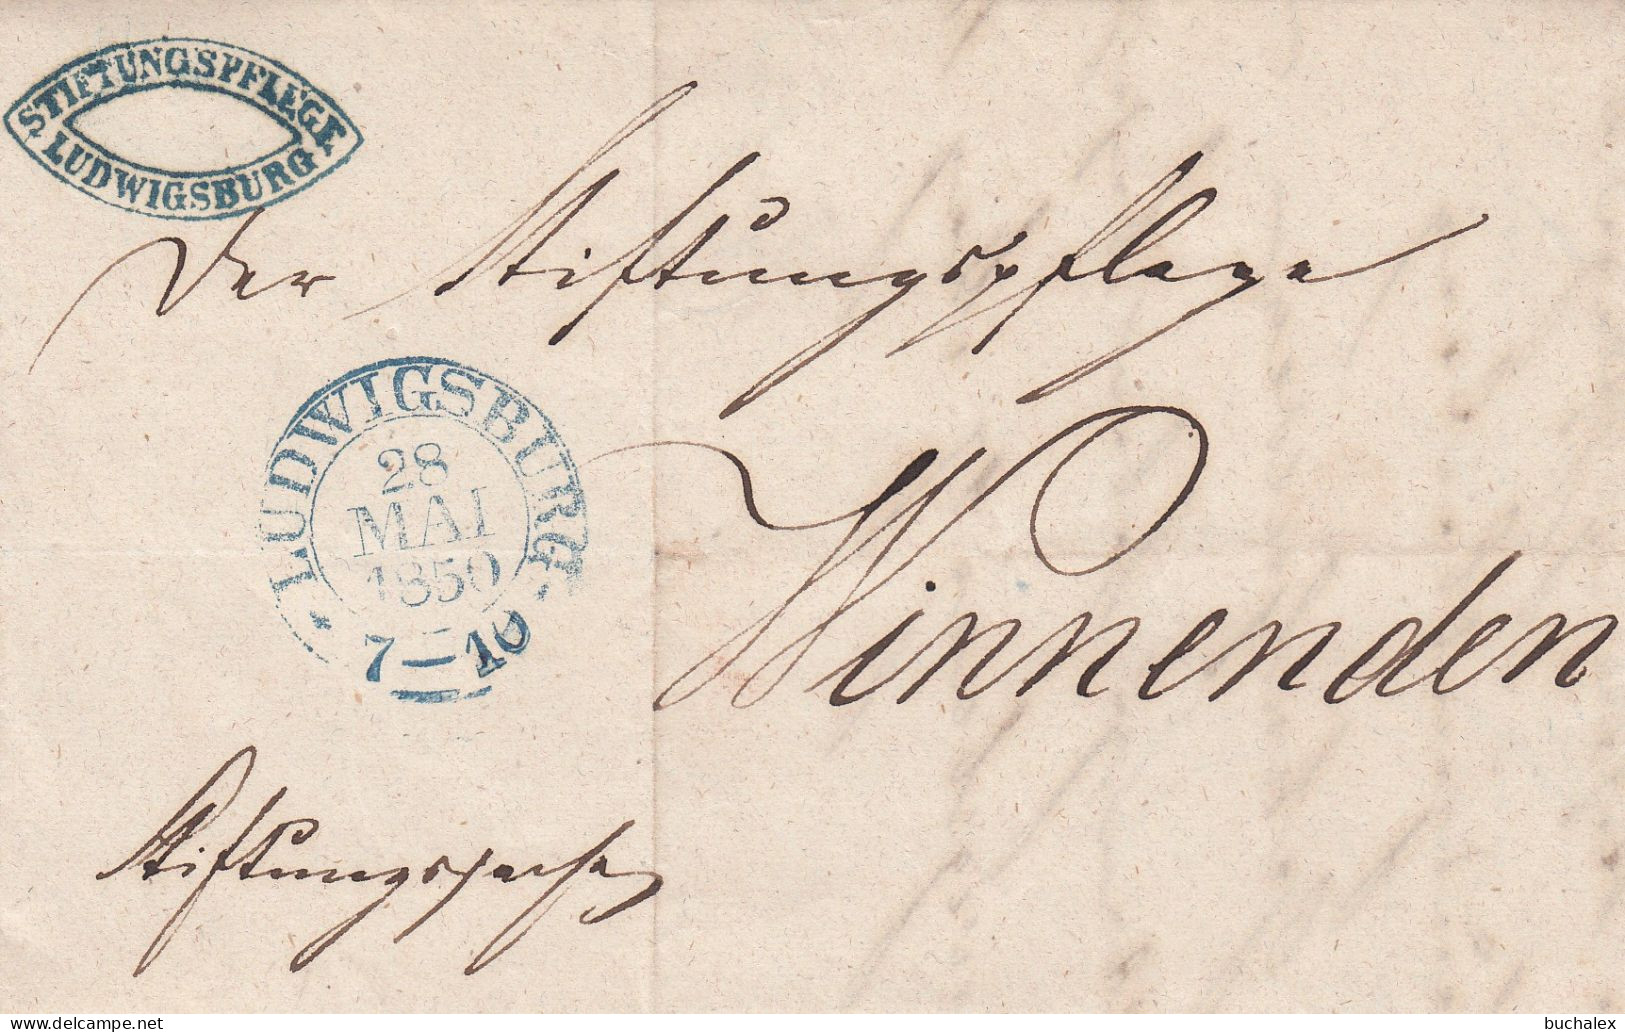 STIFTUNGSPFLEGE
LUDWIGSBURG
Der Stiftungspflege
LUDWIGSBURG
28
MAI
1850
7—10
Winnenden
Stiftungssache
delcampe.net
buchalex